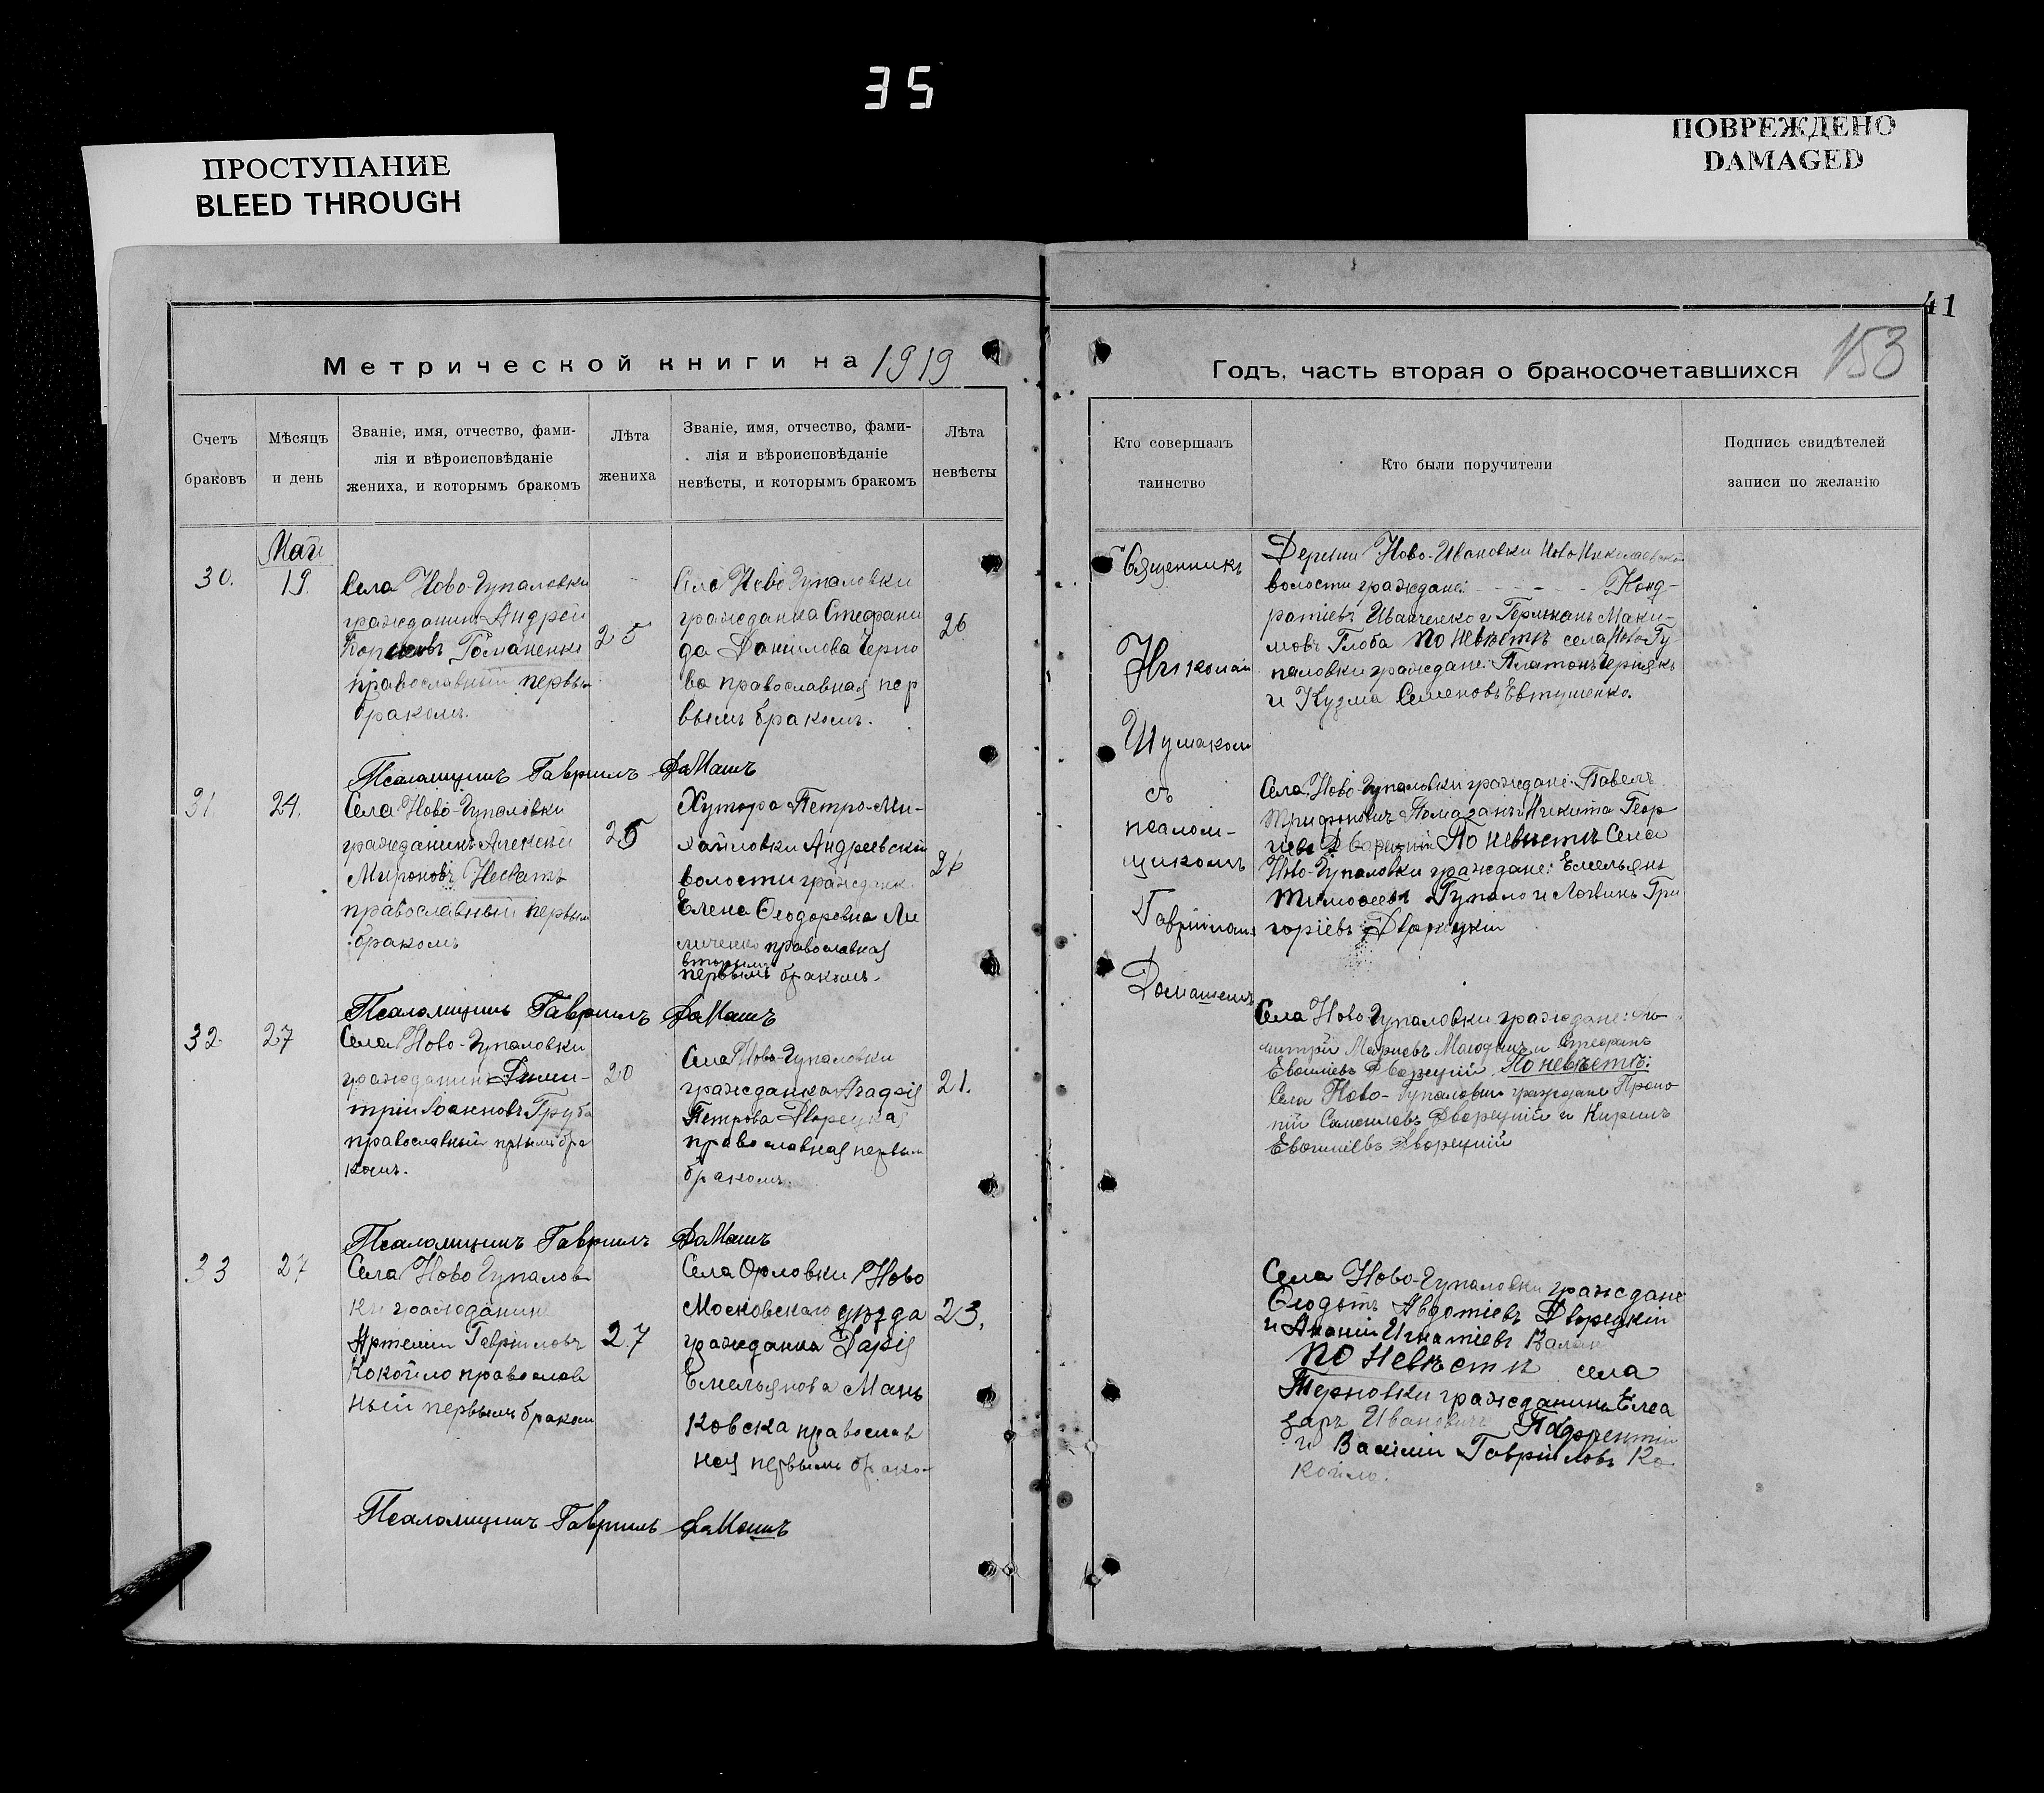 35
ПРОСТУПАНИЕ
BLEED THROUGH
ПОВРЕЖДЕНО
DAMAGED
41
Метрической книги на 1919
Счетъ
браковъ
Мѣсяцъ
и день
Званіе, имя, отчество, фами-
лія и вѣроисповѣданіе
жениха, и которымъ бракомъ
Лѣта
жениха
Званіе, имя, отчество, фами-
лія и вѣроисповѣданіе
невѣсты, и которымъ бракомъ
Лѣта
невѣсты
Май
30.
19.
Села Ново-Гупаловки
гражданинъ Андрей
Романенко
православный первым
бракомъ.
25
Села Ново Гупаловки
гражданка Стефани
да Данилова Черно
ва православная пер
вымъ бракомъ.
26
Псаломщикъ Гавриилъ Домашъ
31.
24.
Села Ново-Гупаловки
гражданинъ Алексѣй
Мироновъ Несватъ
православный первым
бракомъ
25
Хутора Петро-Ми-
хайловки Андреевской
волости гражданк
Елена Ѳеодоровна Ли
православная
вторымъ
первымъ бракомъ.
Псаломщикъ Гавриилъ Домашъ
32.
27
Села Ново-Гупаловки
гражданинъ Дими-
трій Іоанновъ Груба
православный первымъ бра
комъ.
20
Села Ново-Гупаловки
гражданка
Петрова Дворецкая
православная первым
бракомъ.
21.
Псаломщикъ Гавриилъ Домашъ
33
27
Села Ново Гупалов
ки гражданинъ
Артемій Гавриловъ
Кокойло православ
ный первымъ браком
27
Села Орловки Ново
Московскаго уѣзда
гражданка Дарія
Емельянова Мань
ковска православ
ная первымъ брако
23.
Псаломщикъ Гавриилъ Домашъ
Годъ, часть вторая о бракосочетавшихся
153
Кто совершалъ
таинство
Кто были поручители
Подпись свидѣтелей
записи по желанію
Священникъ
Николай
Шумаком
съ
псалом-
щикомъ
Гавріилом
Домашемъ
Деревни Ново-Ивановки Ново Николаевской
волости граждане: Конд-
ратіевъ Иванченко и Германъ Макси-
мовъ Глоба По невѣстѣ села Ново Гу
паловки граждане: Платонъ Чернякъ
и Кузма Семеновъ Евтушенко.
Села Ново-Гупаловки граждане: Павелъ
Трифоновичъ Помазанъ и Никита Геор
гіевъ Дворецкій По невѣстѣ Села
Ново-Гупаловки граждане: Емельянъ
Тимоѳеевъ Гупало и Логвинъ Гри
горіевъ Дворецкій
Села Ново Гупаловки граждане: Ди
митрій и Стефанъ
Евѳиміевъ Дворецкій По невѣстѣ:
Села Ново-Гупаловки граждане Проко
пій Самоиловъ Дворецкій и Кирилъ
Евѳиміевъ Дворецкій
Села Ново-Гупаловки граждане
Ѳеодотъ Авдотіевъ Дворецкій
и Ананій Игнатіевъ
По невѣстѣ села
Терновки гражданинъ Елеа
заръ Ивановичъ
и Василій Гавріиловъ Ко
койло.